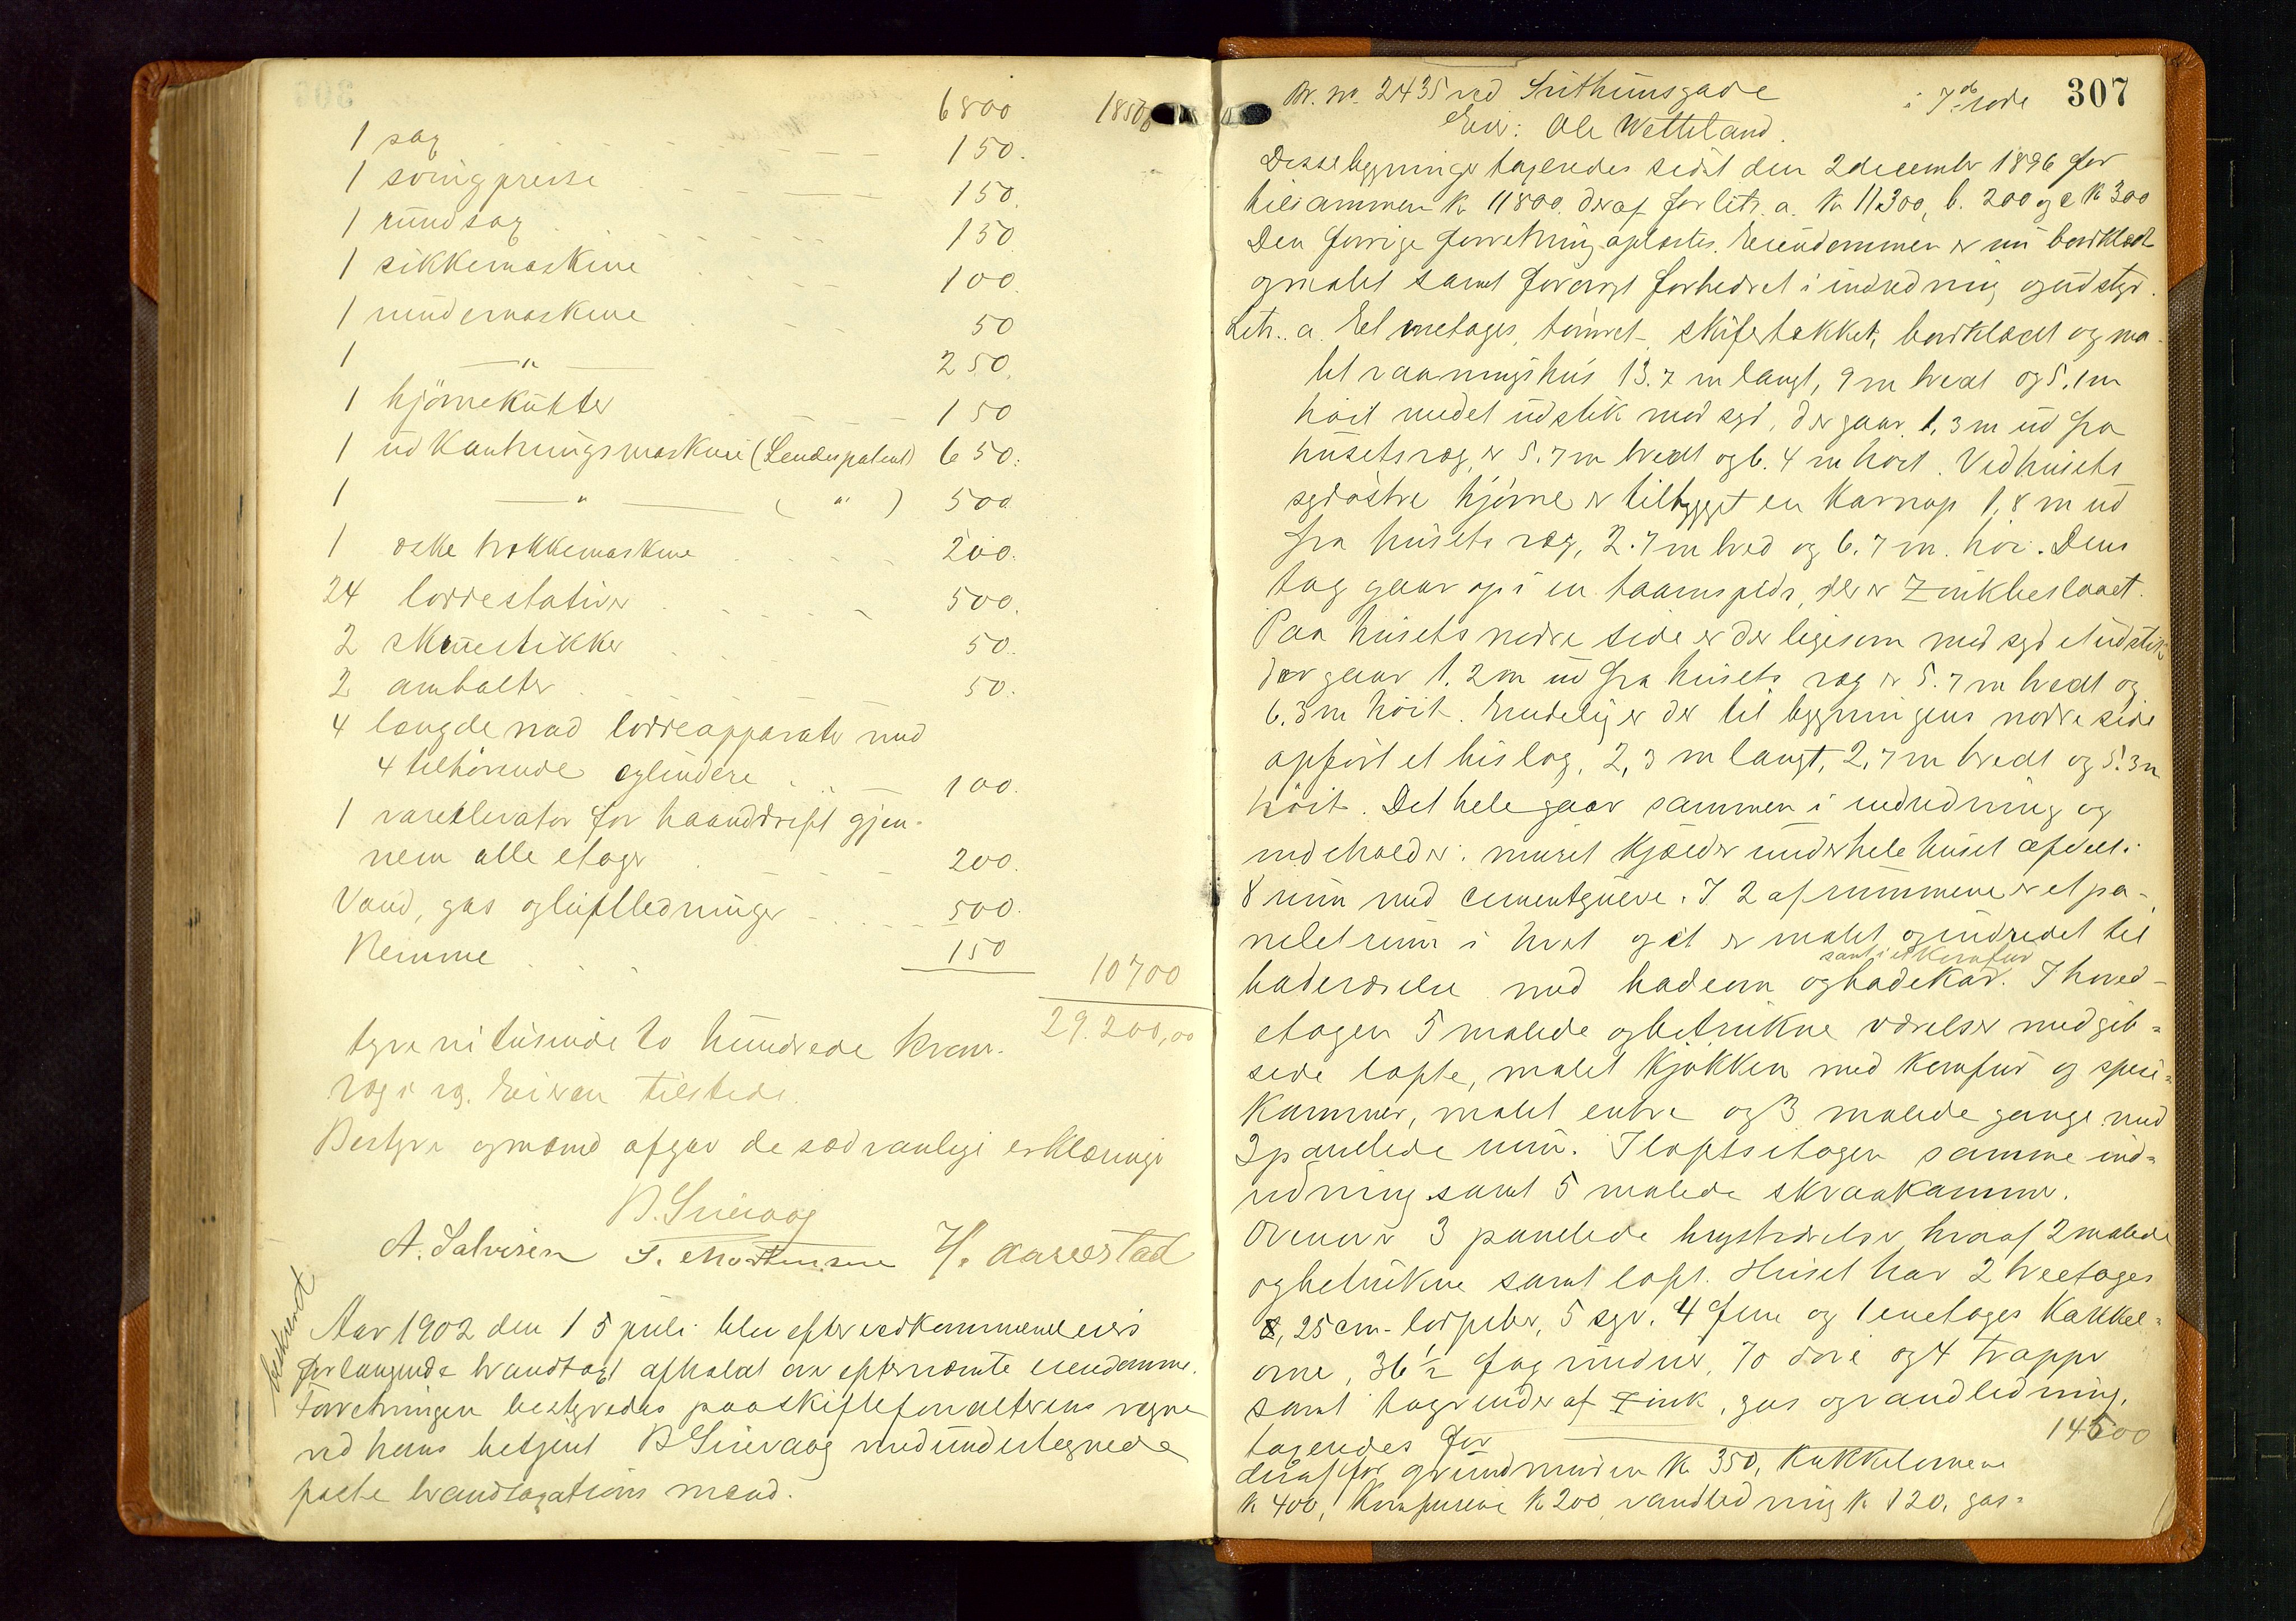 6800 18500
1 sag 150.
1 svingpresse 150.
1 rundsag 150
1 sikkemaskine 100.
1 rundemaskine 50
1 —"— 250.
1 hjörnekutter 150
1 udkantningsmaskine (Lendes patent) 650.
1 —"— ( " ) 500
1 æske trækkemaskine 200.
24 loddestativer 500.
2 skruestikker 50.
2 ambolter 50.
4 langde nad loddeapparater med
4 tilhörende cylindere 100.
1 vareelevator for haanddrift gjen-
nem alle etager 200.
Vand, gas og luftledninger 500.
Remme 150
10700
29.200,00
tyve ni tusinde to hundrede kroner.
Eieren tilstede.
Bestyrer og mænd afgav de sædvanlige erklæringer
B. Sneivaag
A. Salvesen T. Mortensen H. Aarrestad
beskrevet
Aar 1902 den 15 juli blev efter vedkommende eiers
forlangende brandtaxt afholdt over efternævnte eiendomme.
Forretningen bestyredes paa skifteforvalterens vegne
ved hans betjent B Sneivaag med undertegnede
faste brandtaxations mænd.
307
Br. no. 2435 ved Svithunsgade i 7de rode
Eier: Ole Wetteland.
Disse bygninger taxeredes sidst den 2 december 1896 for
tilsammen K 11800. deraf for litr. a. K 11300, b. 200 og c K 300
Den forrige forretning oplæstes. Eiendommen er nu bordklædt
og malet samt forövrigt forbedret i indredning og udstyr.
Litr. a. Et enetages, tömret, skifertækket, bordklædt og ma-
let vaaningshus 13.7 m langt, 9 m bredt og 5.1 m
höit med et udstik mod syd, der gaar 1,3 m ud fra
husets væg, er 5.7 m bredt og 6.4 m höit. Ved husets
sydöstre hjörne er tilbygget en karnap 1,8 m ud
fra husets væg, 2.7 m bred og 6.7 m. höi. Dens
tag gaar op i en taarnspids, der er zinkbeslaaet.
Paa husets nordre side er der ligesom mod syd et udstik
der gaar 1.2 m ud fra husets væg er 5.7 m bredt og
6.3 m höit. Endelig er der til bygningens nordre side
opfört et bislag, 2,3 m langt, 2.7 m bredt og 5.3 m
höit. Det hele gaar sammen i indredning og
indeholder: muret kjælder under hele huset afdelt i
8 rum med cementgulve. I 2 af rummene er et pa-
nelet rum i hvert og et er malet og indredet til
samt i et komfur
badeværelse med badeovn og badekar. I hoved-
etagen 5 malede og betrukne værelser med gib-
sede lofte, malet kjökken med komfur og spise-
kammer, malet entre og 3 malede gange med
2 panelede rum. I loftsetagen samme ind-
redning samt 5 malede skraakammer.
Ovenover 3 panelede kvistværelser hvoraf 2 malede
og betrukne samt loft. Huset har 2 treetages
25 cm. lodpiber, 5 syv. 4 fem og 1 enetages kakkel-
ovne, 36 ½ fag vinduer, 70 döre og 4 trapper
samt tagrender af zink, gas og vandledning,
taxeredes for 14500
deraf for grundmuren K 350, kakkelovnene
K 400, komfurene K 200, vandledning K 120, gas-